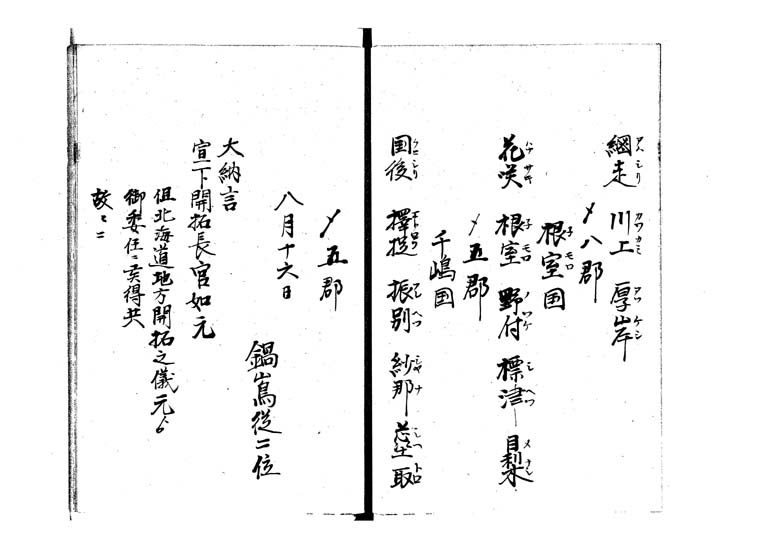 網走 川上 厚岸
〆八郡
根室国
花咲 根室 野付 標津 目梨
〆五郡
千嶋国
国後 擇捉 振別 紗那 蘂取
〆五郡
八月十六日
鍋嶌従二位
大納言
宣下開拓長官如元
但北海道地方開拓之儀元ゟ
御委任ニ
故ニ